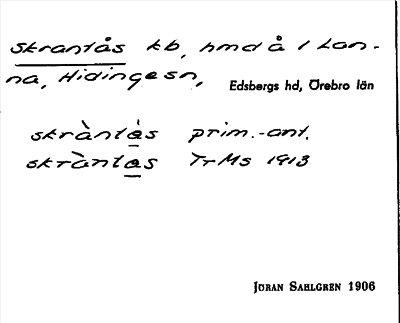 Skrantås kb, hmd å i Lan-
na, Hidinge sn, Edsbergs hd, Örebro län
skràntás prim.-ant.
skràntas TrMs 1913
JÖRAN SAHLGREN 1906